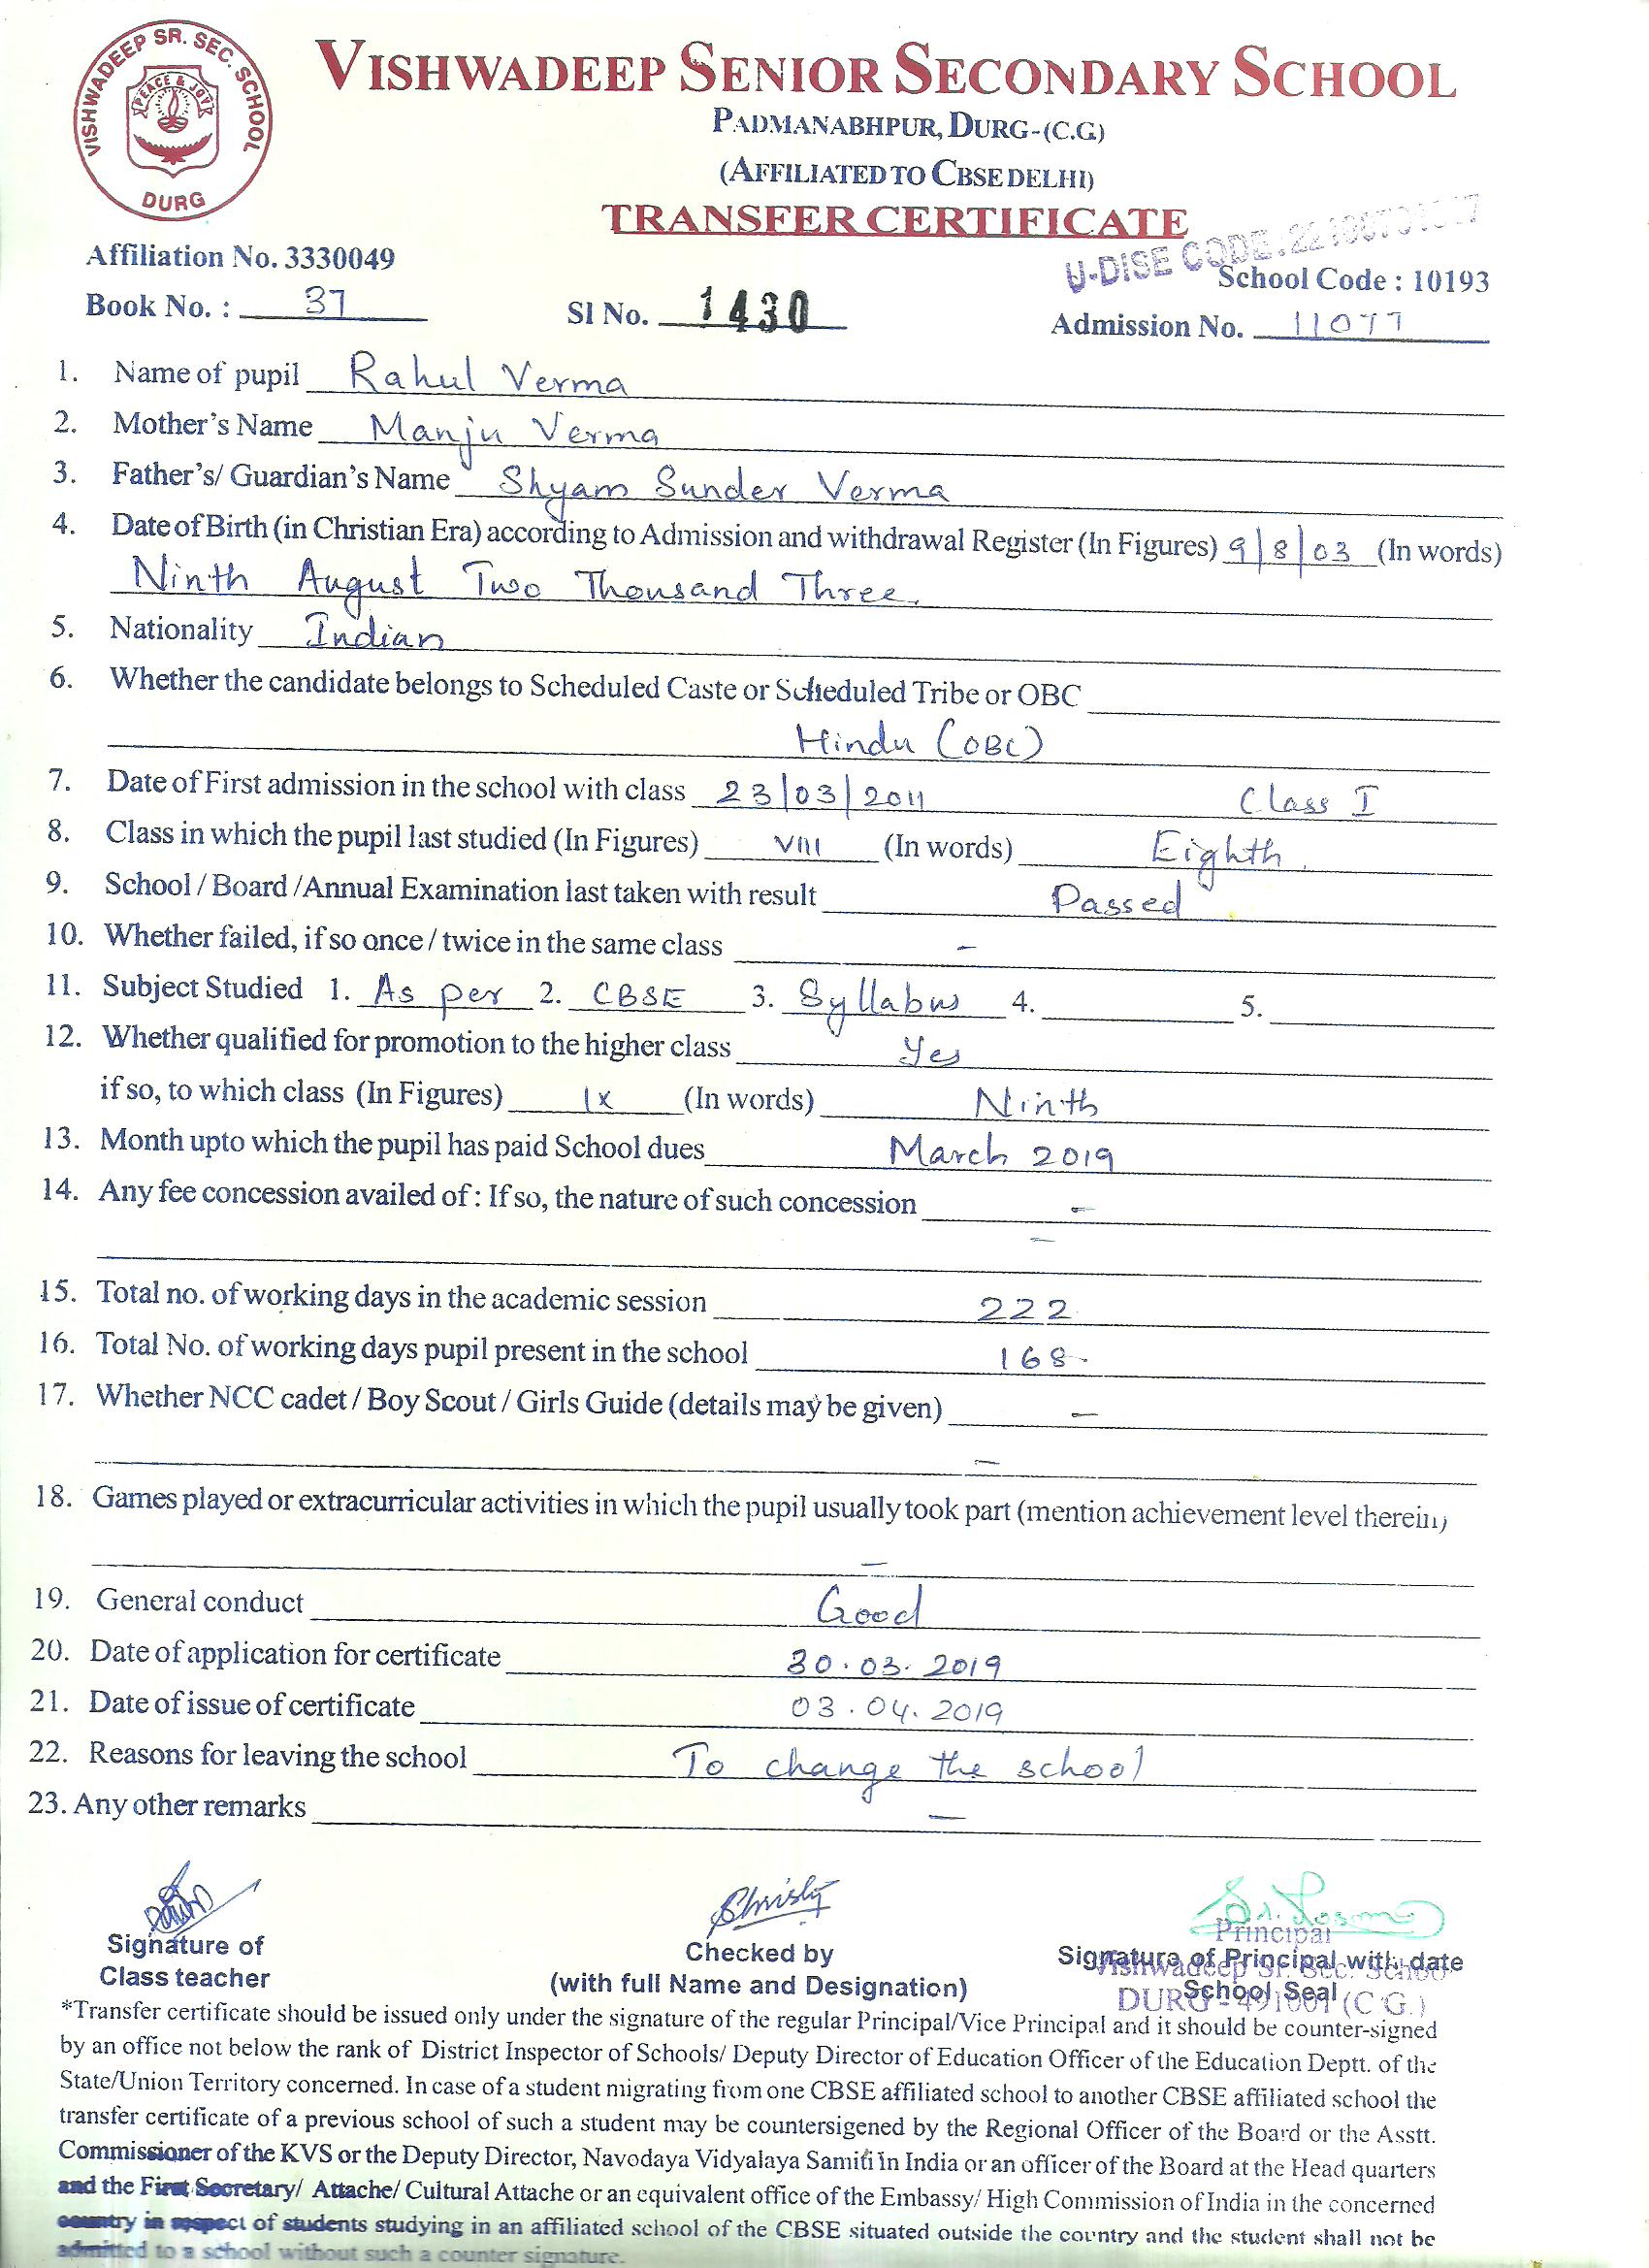 VISHWADEEP SR. SEC. SCHOOL
PEACE & JOY
DURG
VISHWADEEP SENIOR SECONDARY SCHOOL
PADMANABHPUR, DURG-(C.G)
(AFFILIATED TO CBSE DELHI)
TRANSFER CERTIFICATE
U-DISE CODE.
Affiliation No. 3330049 School Code : 10193
Book No. : 37 Sl No. 1430 Admission No. 11077
1. Name of pupil Rahul Verma
2. Mother's Name Manju Verma
3. Father's/ Guardian's Name Shyam Sunder Verma
4. Date of Birth (in Christian Era) according to Admission and withdrawal Register (In Figures) 9/8/03 (In words)
Ninth August Two Thousand Three.
5. Nationality Indian
6. Whether the candidate belongs to Scheduled Caste or Scheduled Tribe or OBC
Hindu (OBC)
7. Date of First admission in the school with class 23/03/2011 Class I
8. Class in which the pupil last studied (In Figures) VIII (In words) Eighth.
9. School / Board /Annual Examination last taken with result Passed
10. Whether failed, if so once / twice in the same class –
11. Subject Studied 1. As per 2. CBSE 3. Syllabus 4. 5.
12. Whether qualified for promotion to the higher class Yes
if so, to which class (In Figures) IX (In words) Ninth
13. Month upto which the pupil has paid School dues March 2019
14. Any fee concession availed of : If so, the nature of such concession –
–
15. Total no. of working days in the academic session 222
16. Total No. of working days pupil present in the school 168
17. Whether NCC cadet / Boy Scout / Girls Guide (details may be given) –
–
18. Games played or extracurricular activities in which the pupil usually took part (mention achievement level therein)
–
19. General conduct Good
20. Date of application for certificate 30.03.2019
21. Date of issue of certificate 03.04.2019
22. Reasons for leaving the school To change the school
23. Any other remarks –
Christy
Principal
Signature of Checked by Signature of Principal with date
Vishwadeep Sr. Sec. School
Class teacher (with full Name and Designation) School Seal
DURG - 491001 (C.G.)
*Transfer certificate should be issued only under the signature of the regular Principal/Vice Principal and it should be counter-signed
by an office not below the rank of District Inspector of Schools/ Deputy Director of Education Officer of the Education Deptt. of the
State/Union Territory concerned. In case of a student migrating from one CBSE affiliated school to another CBSE affiliated school the
transfer certificate of a previous school of such a student may be countersigened by the Regional Officer of the Board or the Asstt.
Commissioner of the KVS or the Deputy Director, Navodaya Vidyalaya Samiti in India or an officer of the Board at the Head quarters
and the First Secretary/ Attache/ Cultural Attache or an equivalent office of the Embassy/ High Commission of India in the concerned
country in respect of students studying in an affiliated school of the CBSE situated outside the country and the student shall not be
admitted to a school without such a counter signature.